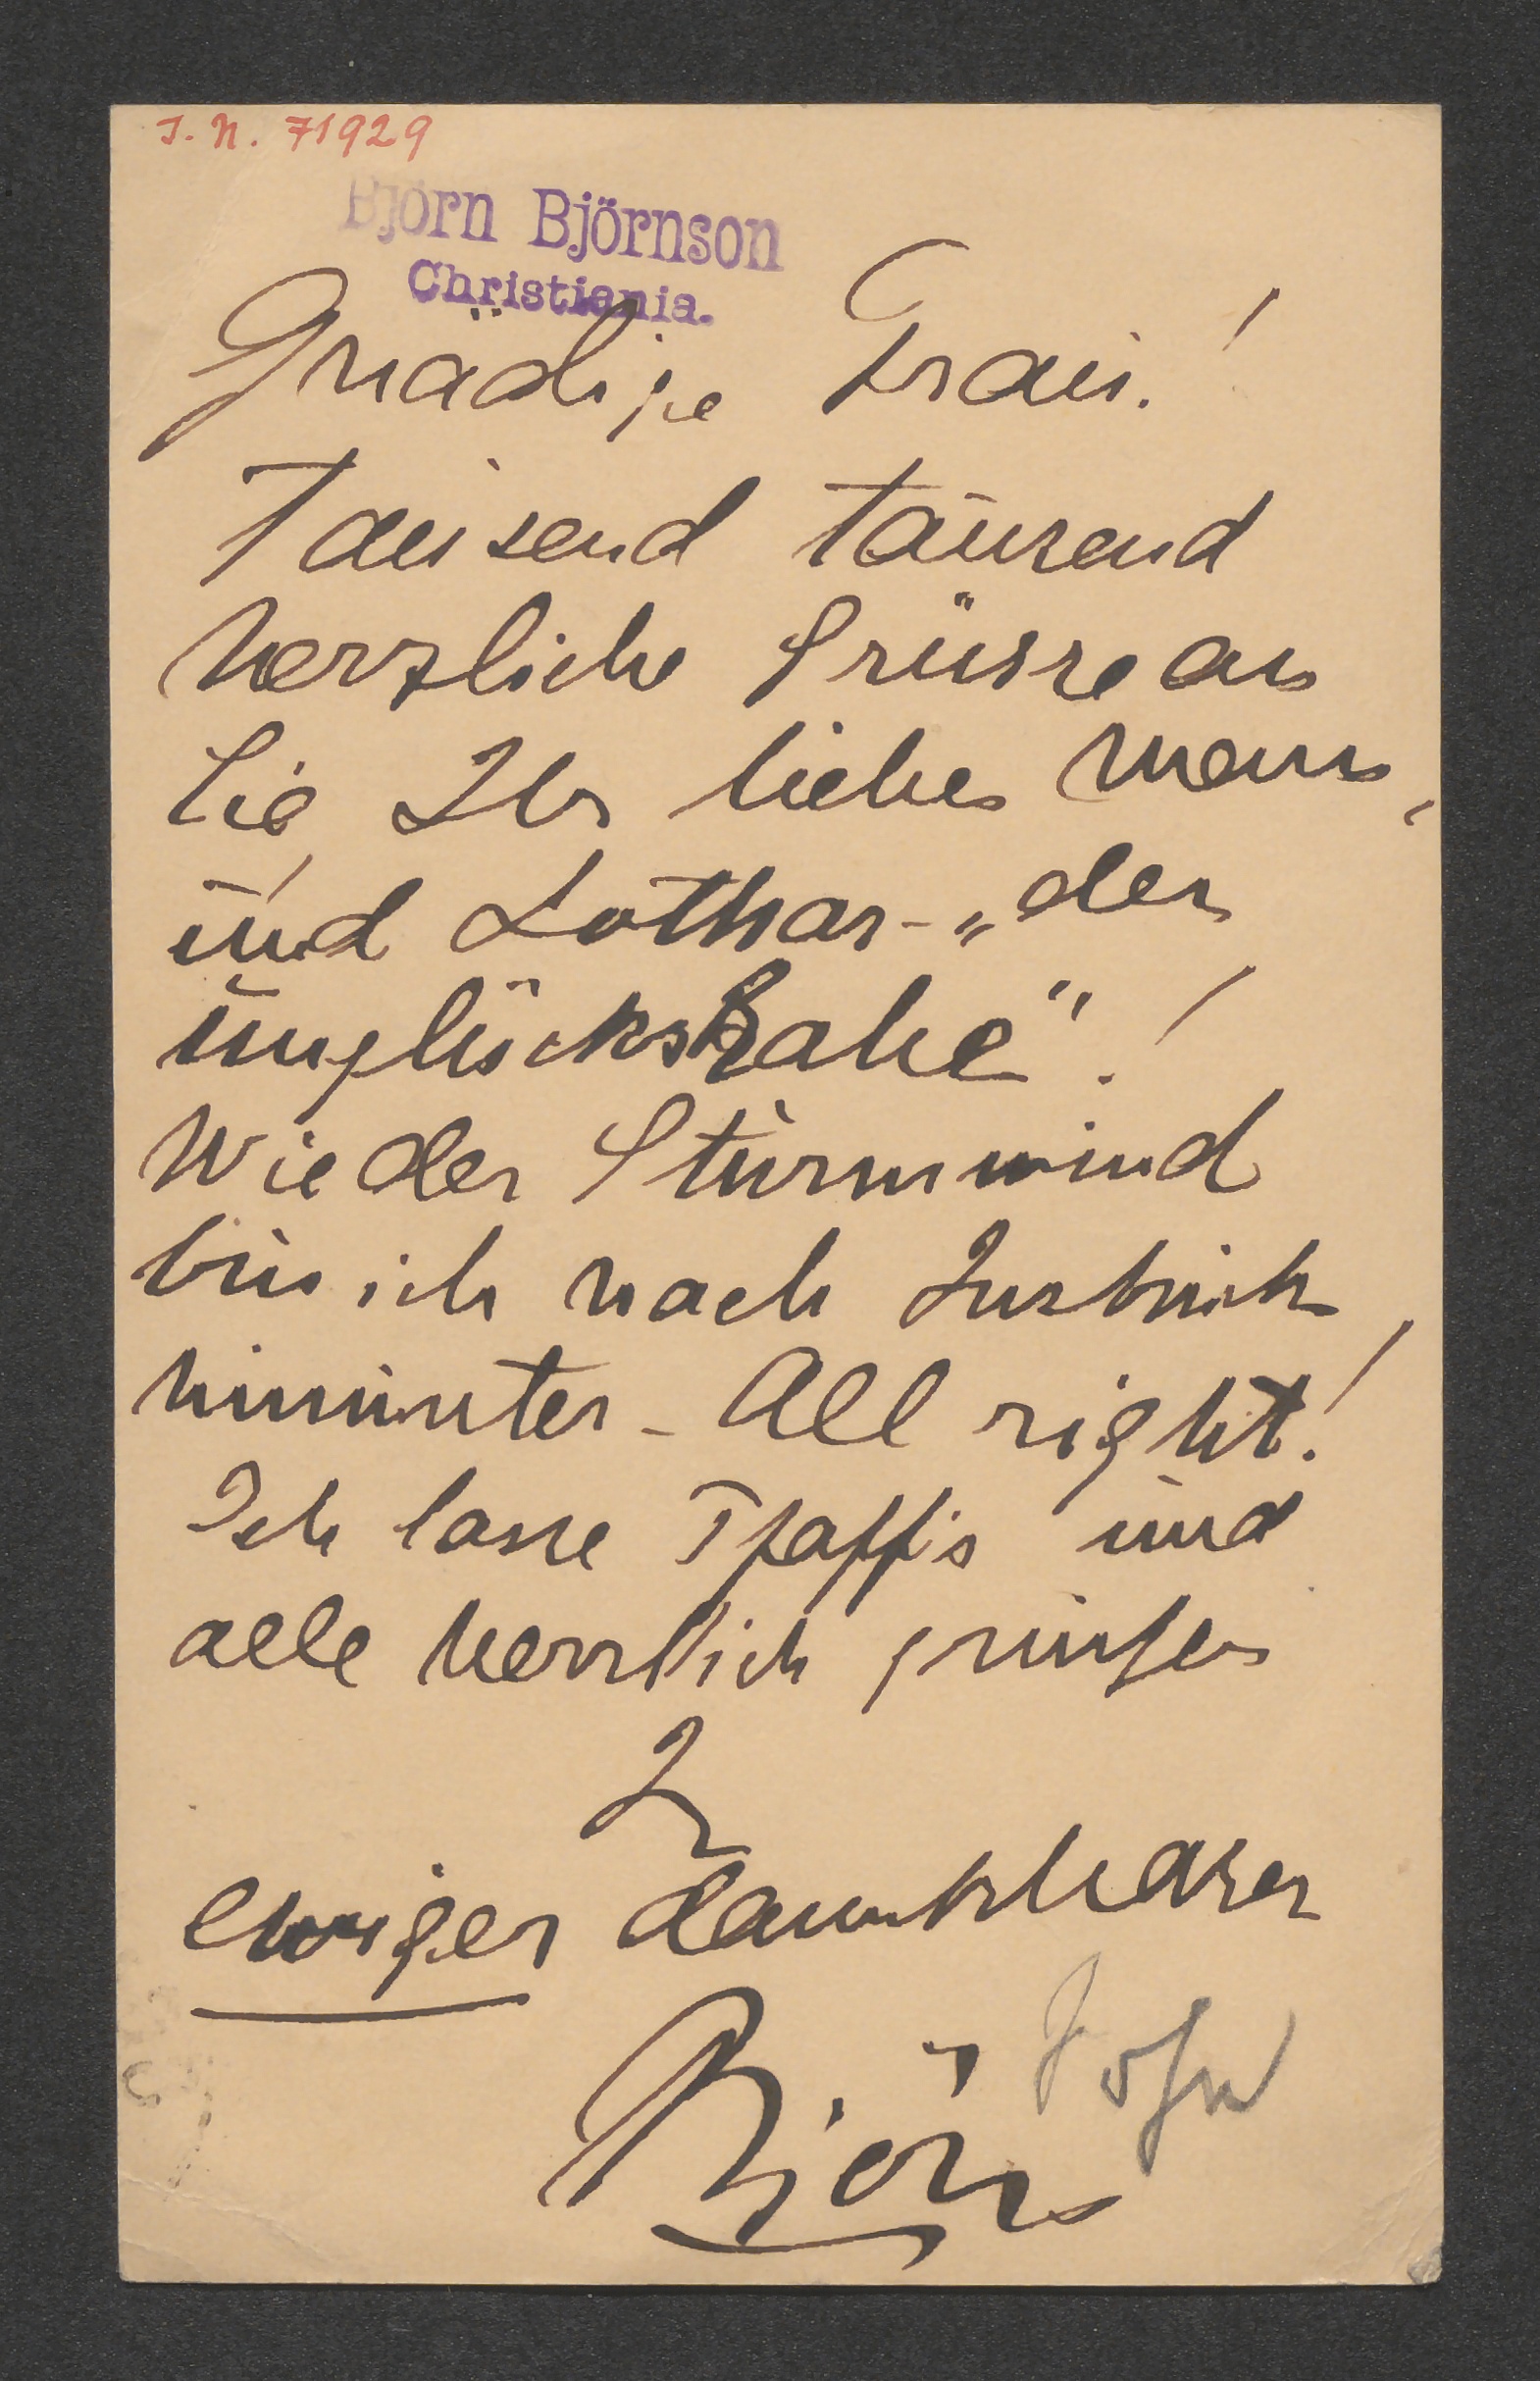 I. N. 71929
Björn Björnson
Christiania.
Gnädige Frau!
Tausend tausend
herzliche Grüsse an
Sie, Ihr lieber Mann,
und Lothar - „der
UnglücksRabe"!
Wie der Sturmwind
bin ich nach Insbruck
hinunter - All right!
Ich lasse Pfaff's und
alle herzlich grüßen
Ihr
ewiger dankbarer
Björn
Sohn